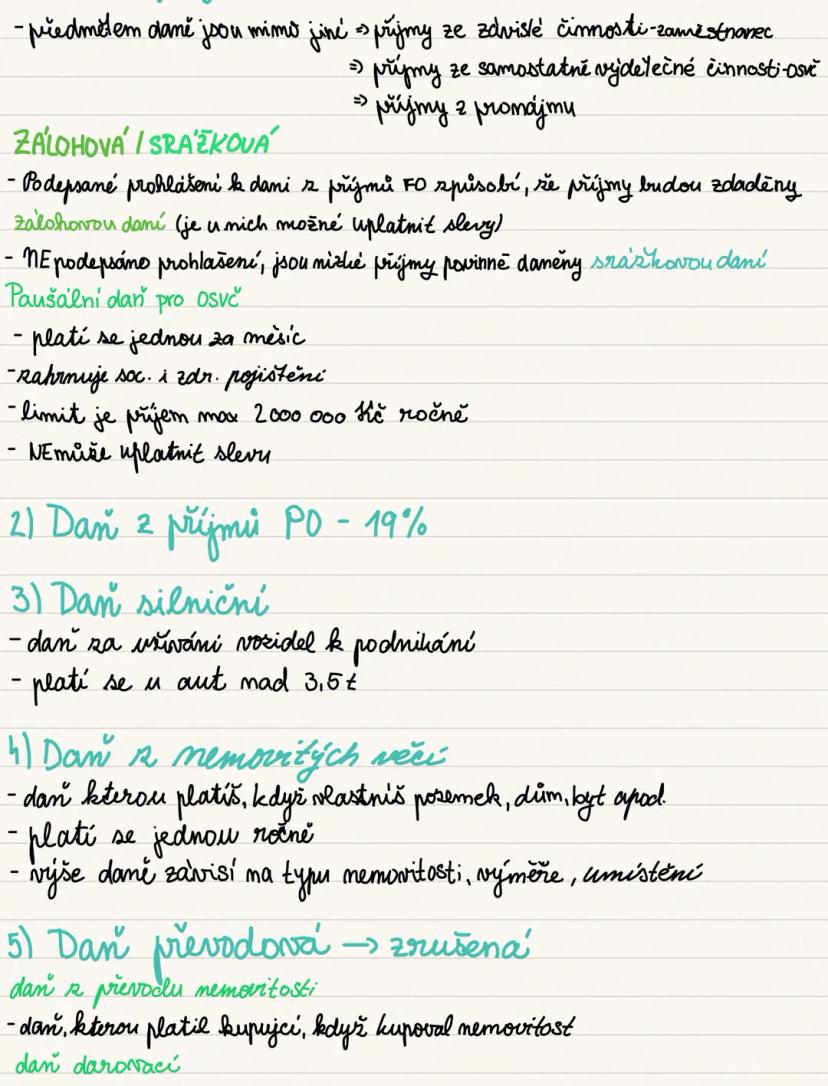 - předmětem daně jsou mimo jiné ⇒ příjmy ze závislé činnosti - zaměstnanec
⇒ příjmy ze samostatně výdělečné činnosti - OSVČ
⇒ příjmy z pronájmu
ZÁLOHOVÁ / SRÁŽKOVÁ
- Podepsané prohlášení k dani z příjmů FO způsobí, že příjmy budou zdaněny
zálohovou daní (je u nich možné uplatnit slevy)
- NEpodepsáno prohlašení, jsou nízké příjmy povinně daněny srážkovou daní
Paušální daň pro OSVČ
- platí se jednou za měsíc
- zahrnuje soc. i zdr. pojištění
- limit je příjem max 2 000 000 Kč ročně
- NEmůže uplatnit slevu
2) Daň z příjmů PO - 19%
3) Daň silniční
- daň za užívání vozidel k podnikání
- platí se u aut nad 3,5t
4) Daň z nemovitých věcí
- daň kterou platíš, když vlastníš pozemek, dům, byt apod.
- platí se jednou ročně
- výše daně závisí na typu nemovitosti, výměře, umístění
5) Daň převodová → zrušená
daň z převodu nemovitosti
- daň, kterou platil kupující, když kupoval nemovitost
daň darovací